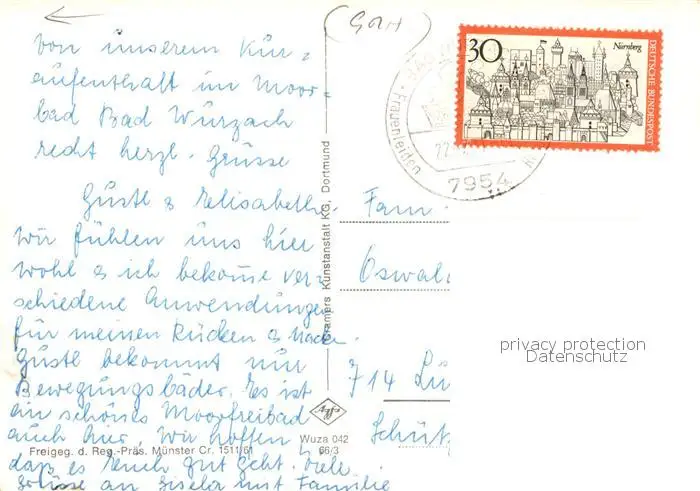 (GOLH)
von unserem Kur=
aufenthalt im Moor-
bad Bad Wurzach
recht herzl. Grüsse
Gustl & Elisabeth.
Wir fühlen uns hier
wohl & ich bekomme ver=
schiedene Anwendungen
für meinen Rücken & Nacken.
Gustl bekommt nur
Bewegungsbäder. Es ist
ein schönes Moorfreibad
auch hier. Wir hoffen
daß es Euch gut geht. Viele
Grüsse an Gisela mit Familie
Freigeg. d. Reg.-Präs. Münster Cr. 1511/61
Cramers Kunstanstalt KG, Dortmund
Agfa
Wuza 042
66/3
30
Nürnberg
DEUTSCHE BUNDESPOST
BAD
Frauenleiden
22.
7954
Fam.
Oswal
714 Lu
Schüt
privacy protection
Datenschutz